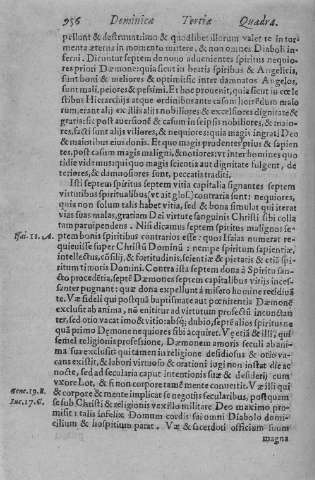 956 Dominicæ Tertiæ Quadra.
pellunt & destruunt: imo & quodlibet illorum valet te in tor-
menta æterna in momento mittere, & non omnes Diaboli in-
ferni. Dicuntur septem de nouo aduenientes spiritus nequio-
res priori Dæmone: quia sicut in beatis spiritibus & Angelicis,
sunt boni & meliores & optimi: sic inter damnatos Angelos,
sunt mali, peiores & pessimi. Et hoc prouenit, quia sicut in cœle
stibus Hierarchijs atque ordinibus ante casum horũdum malo
rum, erant alij ex illis alijs nobiliores & excelsiores dignitate &
gratia: sic post auersionẽ & casum in seipsis nobiliores, & maio-
res, facti sunt alijs viliores, & nequiores: quia magis ingrati Deo
& maioribus eius donis. Et quo magis prudentes prius & sapien
tes, post casum magis maligni, & notiores: vt inter homines quo
tidie videmus: qui quo magis scientia aut dignitate fulgent, de-
teriores, & damnosiores sunt, peccatis traditi.
Isti septem spiritus septem vitia capitalia signantes septem
virtutibus spiritualibus (vt ait glos.) contraria sunt: nequiores,
quia non solum talis habet vitia, sed & bona simulat qui iterat
vias suas malas, gratiam Dei virtute sanguinis Christi sibi colla
tam paruipendens. Nisi dicamus septem spiritus malignos se-
Isai. 11. A. ptem bonis spiritibus contrarios esse: quos Isaias numerat re-
quieuisse super Christũ Dominũ: nempe spiritum sapientiæ,
intellectus, cõsilij, & fortitudinis, scientiæ & pietatis & etiã spi-
ritum timoris Domini. Contra ista septem dona à Spiritu san-
cto procedẽtia, septẽ Dæmones septem capitalibus vitijs inces-
sunter pugnant: quæ dona expellunt à misero homine recidiuã
te. Væ fideli qui postquã baptismate aut pœnitentia Dæmonẽ
exclusit ab anima, nõ enititur ad virtutum profectũ incunctan
ter, sed otio vacat imo & vitio: absq; dubio, septẽ alios spiritus ne
quã primo Dæmone nequiores sibi acquiret. Væ etiã & illi, qui
semel religionis professione, Dæmonem amoris seculi ab ani-
ma sua exclusit qui tamen in religione desidiosus & otio va-
cans existit, & labori virtuoso & orationi iugi non instat die ac
nocte, sed ad secularia caput intentionis suæ & desiderij cum
vxore Lot, & si non corpore tamẽ mente conuertit. Væ illi qui
Gene. 19. E. & corpore & mente implicat se negotijs secularibus, postquam
Luc. 17. G. se sub Christi & religionis vexillo militare Deo maximo pro-
misit: talis infelix Domum cordis sui omni Diabolo domi-
cilium & hospitium parat. Væ & sacerdoti officium suum
magna